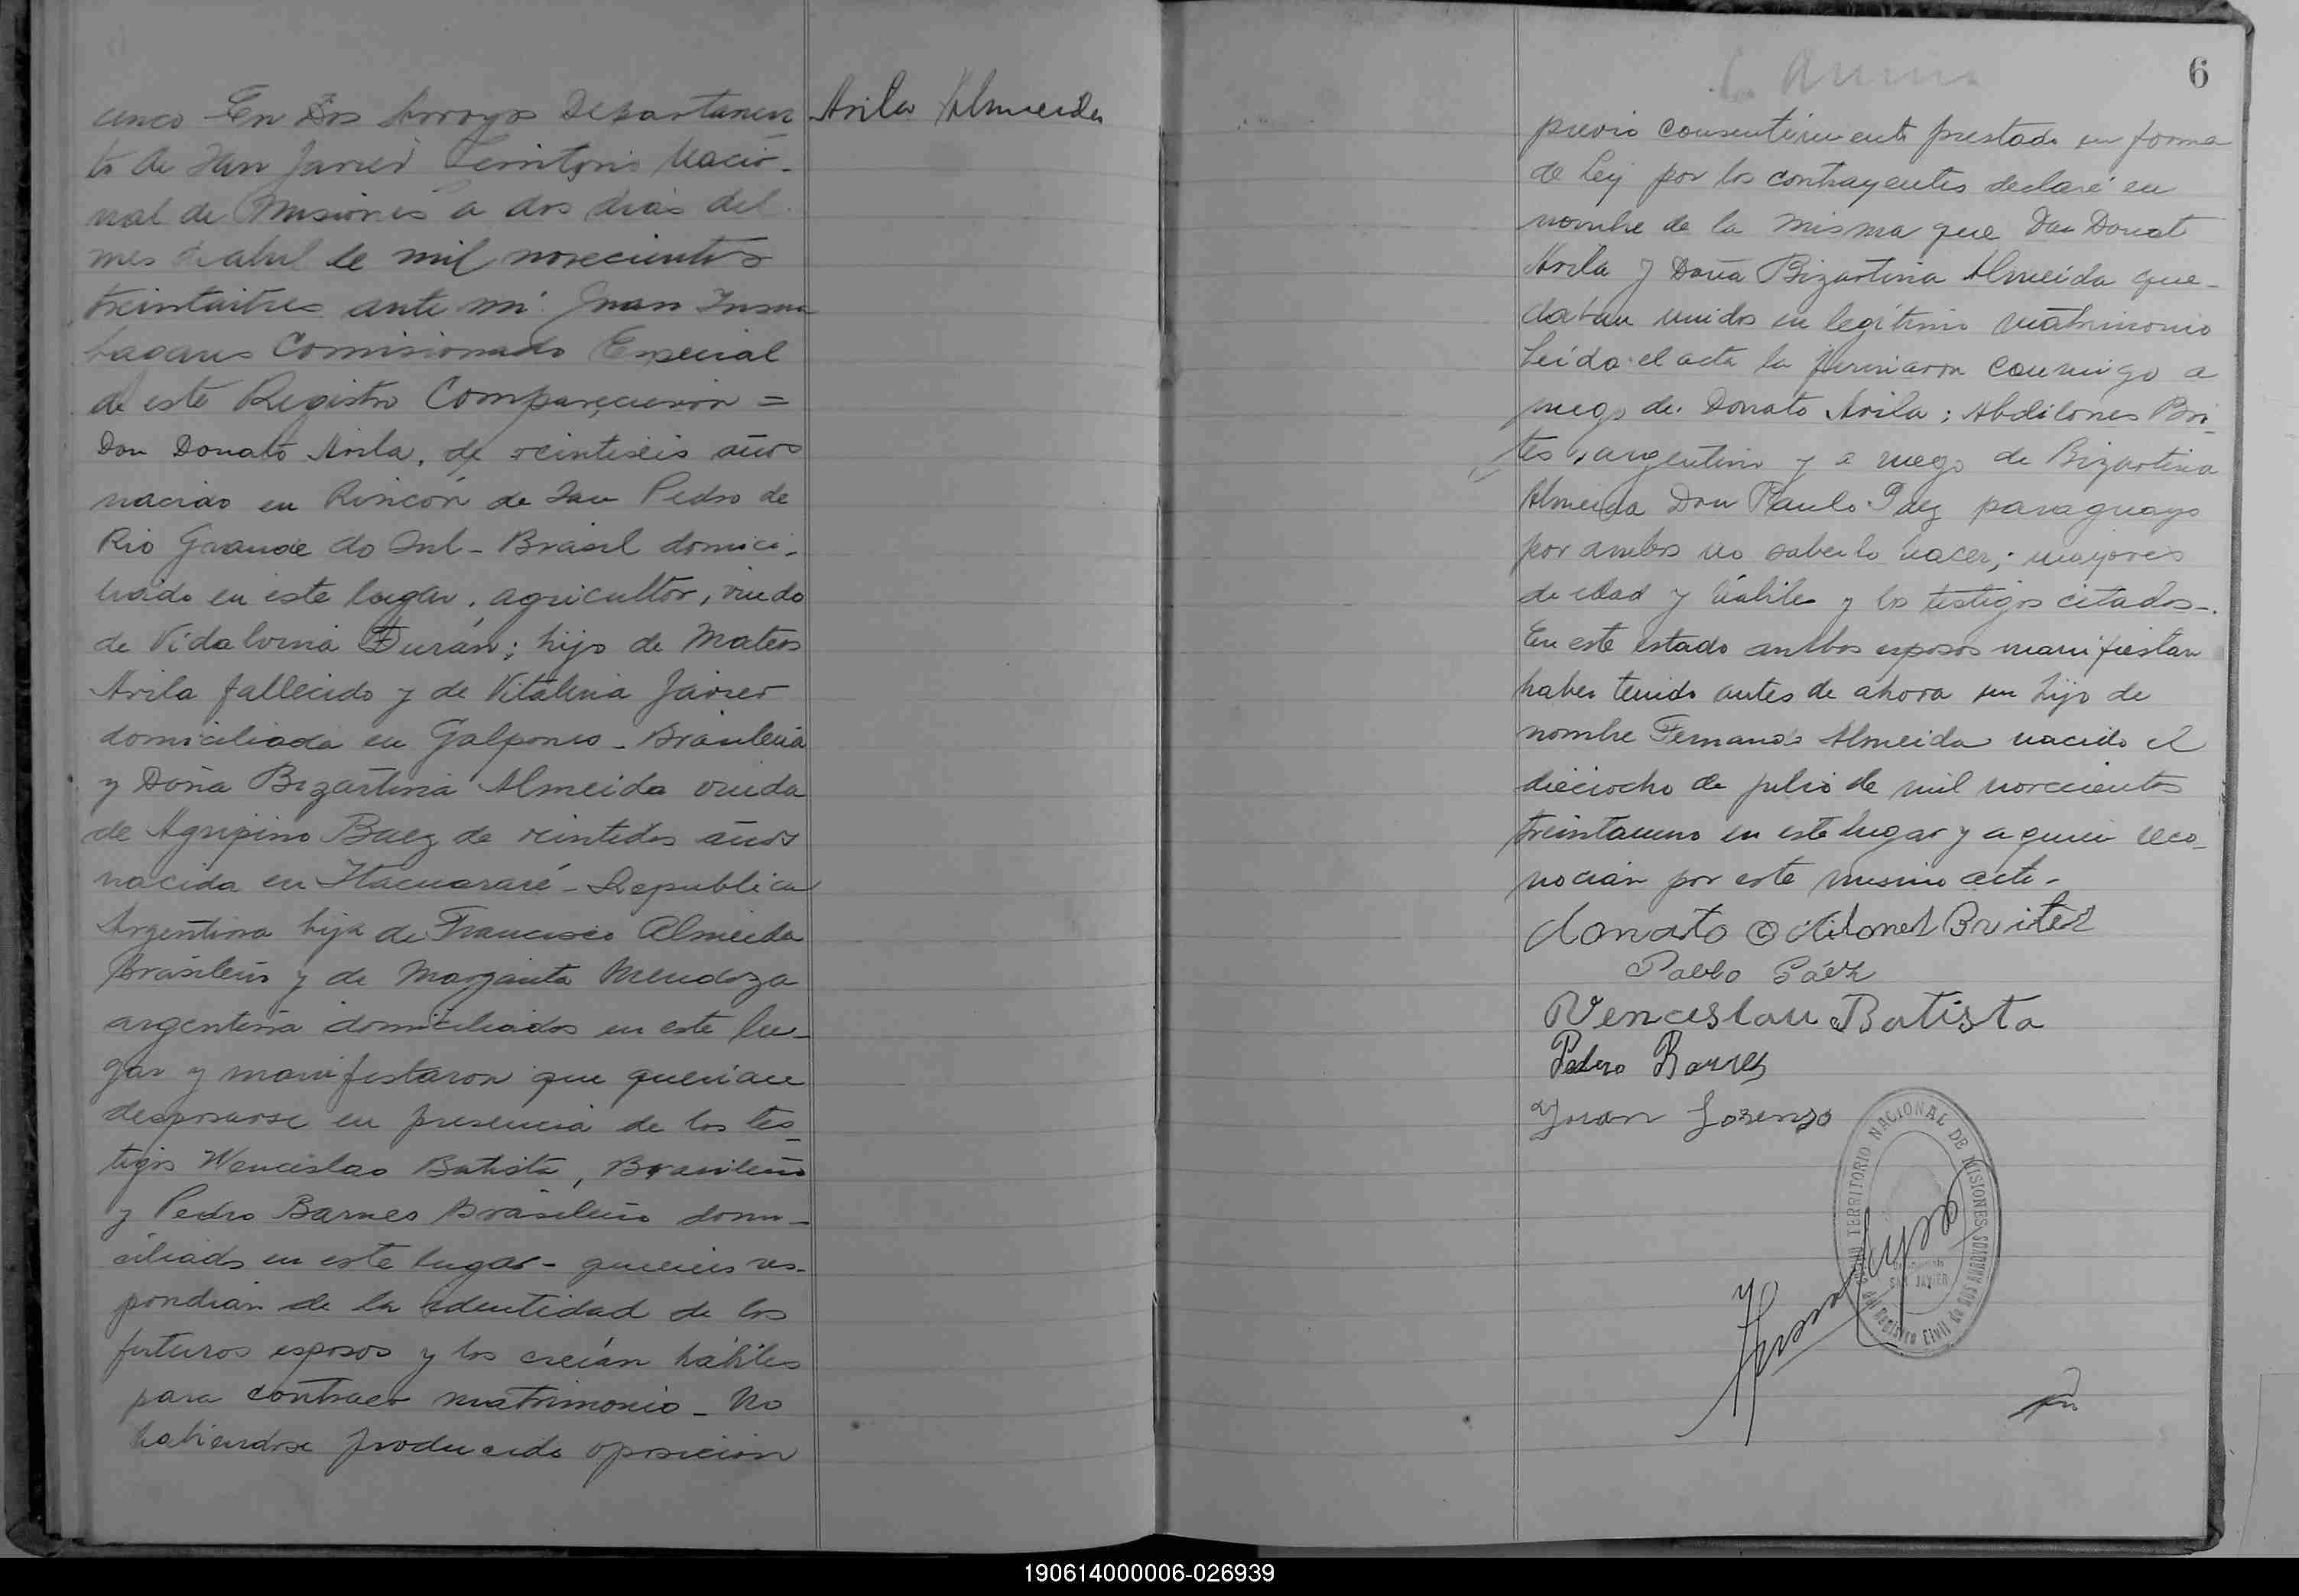 cinco En Dos Arroyos Departamen
to de San Javier Territorio Nacio-
nal de Misiones a dos dias del
mes de abril de mil novecientos
treintaitres ante mi Juan
Comisionado Especial
de este Registro Comparecieron =
Don Donato Avila, de veintiseis años
nacido en Rincón de San Pedro de
Rio Grande do Sul - Brasil domici-
liado en este lugar, agricultor, viudo
de Vidalvina Durán; hijo de Mateos
Avila fallecido y de Vitalina Javier
domiciliada en Galpones - Brasileña
y Doña Bizartina Almeida viuda
de Agripino Baez de veintidos años
nacida en Itacuararé - Republica
Argentina hija de Francisco Almeida
Brasileño y de Margarita Mendoza
argentina domiciliados en este lu-
gar y manifestaron que querian
desposarse en presencia de los tes-
tigos Wenceslao Batista, Brasileño
y Pedro Barnes Brasileño domi-
ciliados en este lugar - quienes res-
pondian de la identidad de los
futuros esposos y los creían hábiles
para contraer matrimonio - No
habiendose producido oposicion
Avila Almeida
6
previo consentimiento prestado en forma
de Ley por los contrayentes declaré en
nombre de la misma que Don Donat
Avila y Doña Bizartina Almeida que-
daban unidos en legítimo matrimonio
Leída el acta la firmaron conmigo a
ruego de Donato Avila; Abdilones Bri-
tes, argentino y a ruego de Bizartina
Almeida Don Paulo Paez paraguayo
por ambos no saberlo hacer; mayores
de edad y hábiles y los testigos citados-.
En este estado ambos esposos manifiestan
haber tenido antes de ahora un hijo de
nombre Fernando Almeida nacido el
dieciocho de julio de mil novecientos
treintauno en este lugar y a quien reco-
nocian por este mismo acto-
donato Britez
Pablo Páez
Venceslau Batista
Pedro Barnes
Juan Lorenzo
TERRITORIO NACIONAL DE MISIONES
del Registro Civil de
SAN JAVIER
190614000006-026939